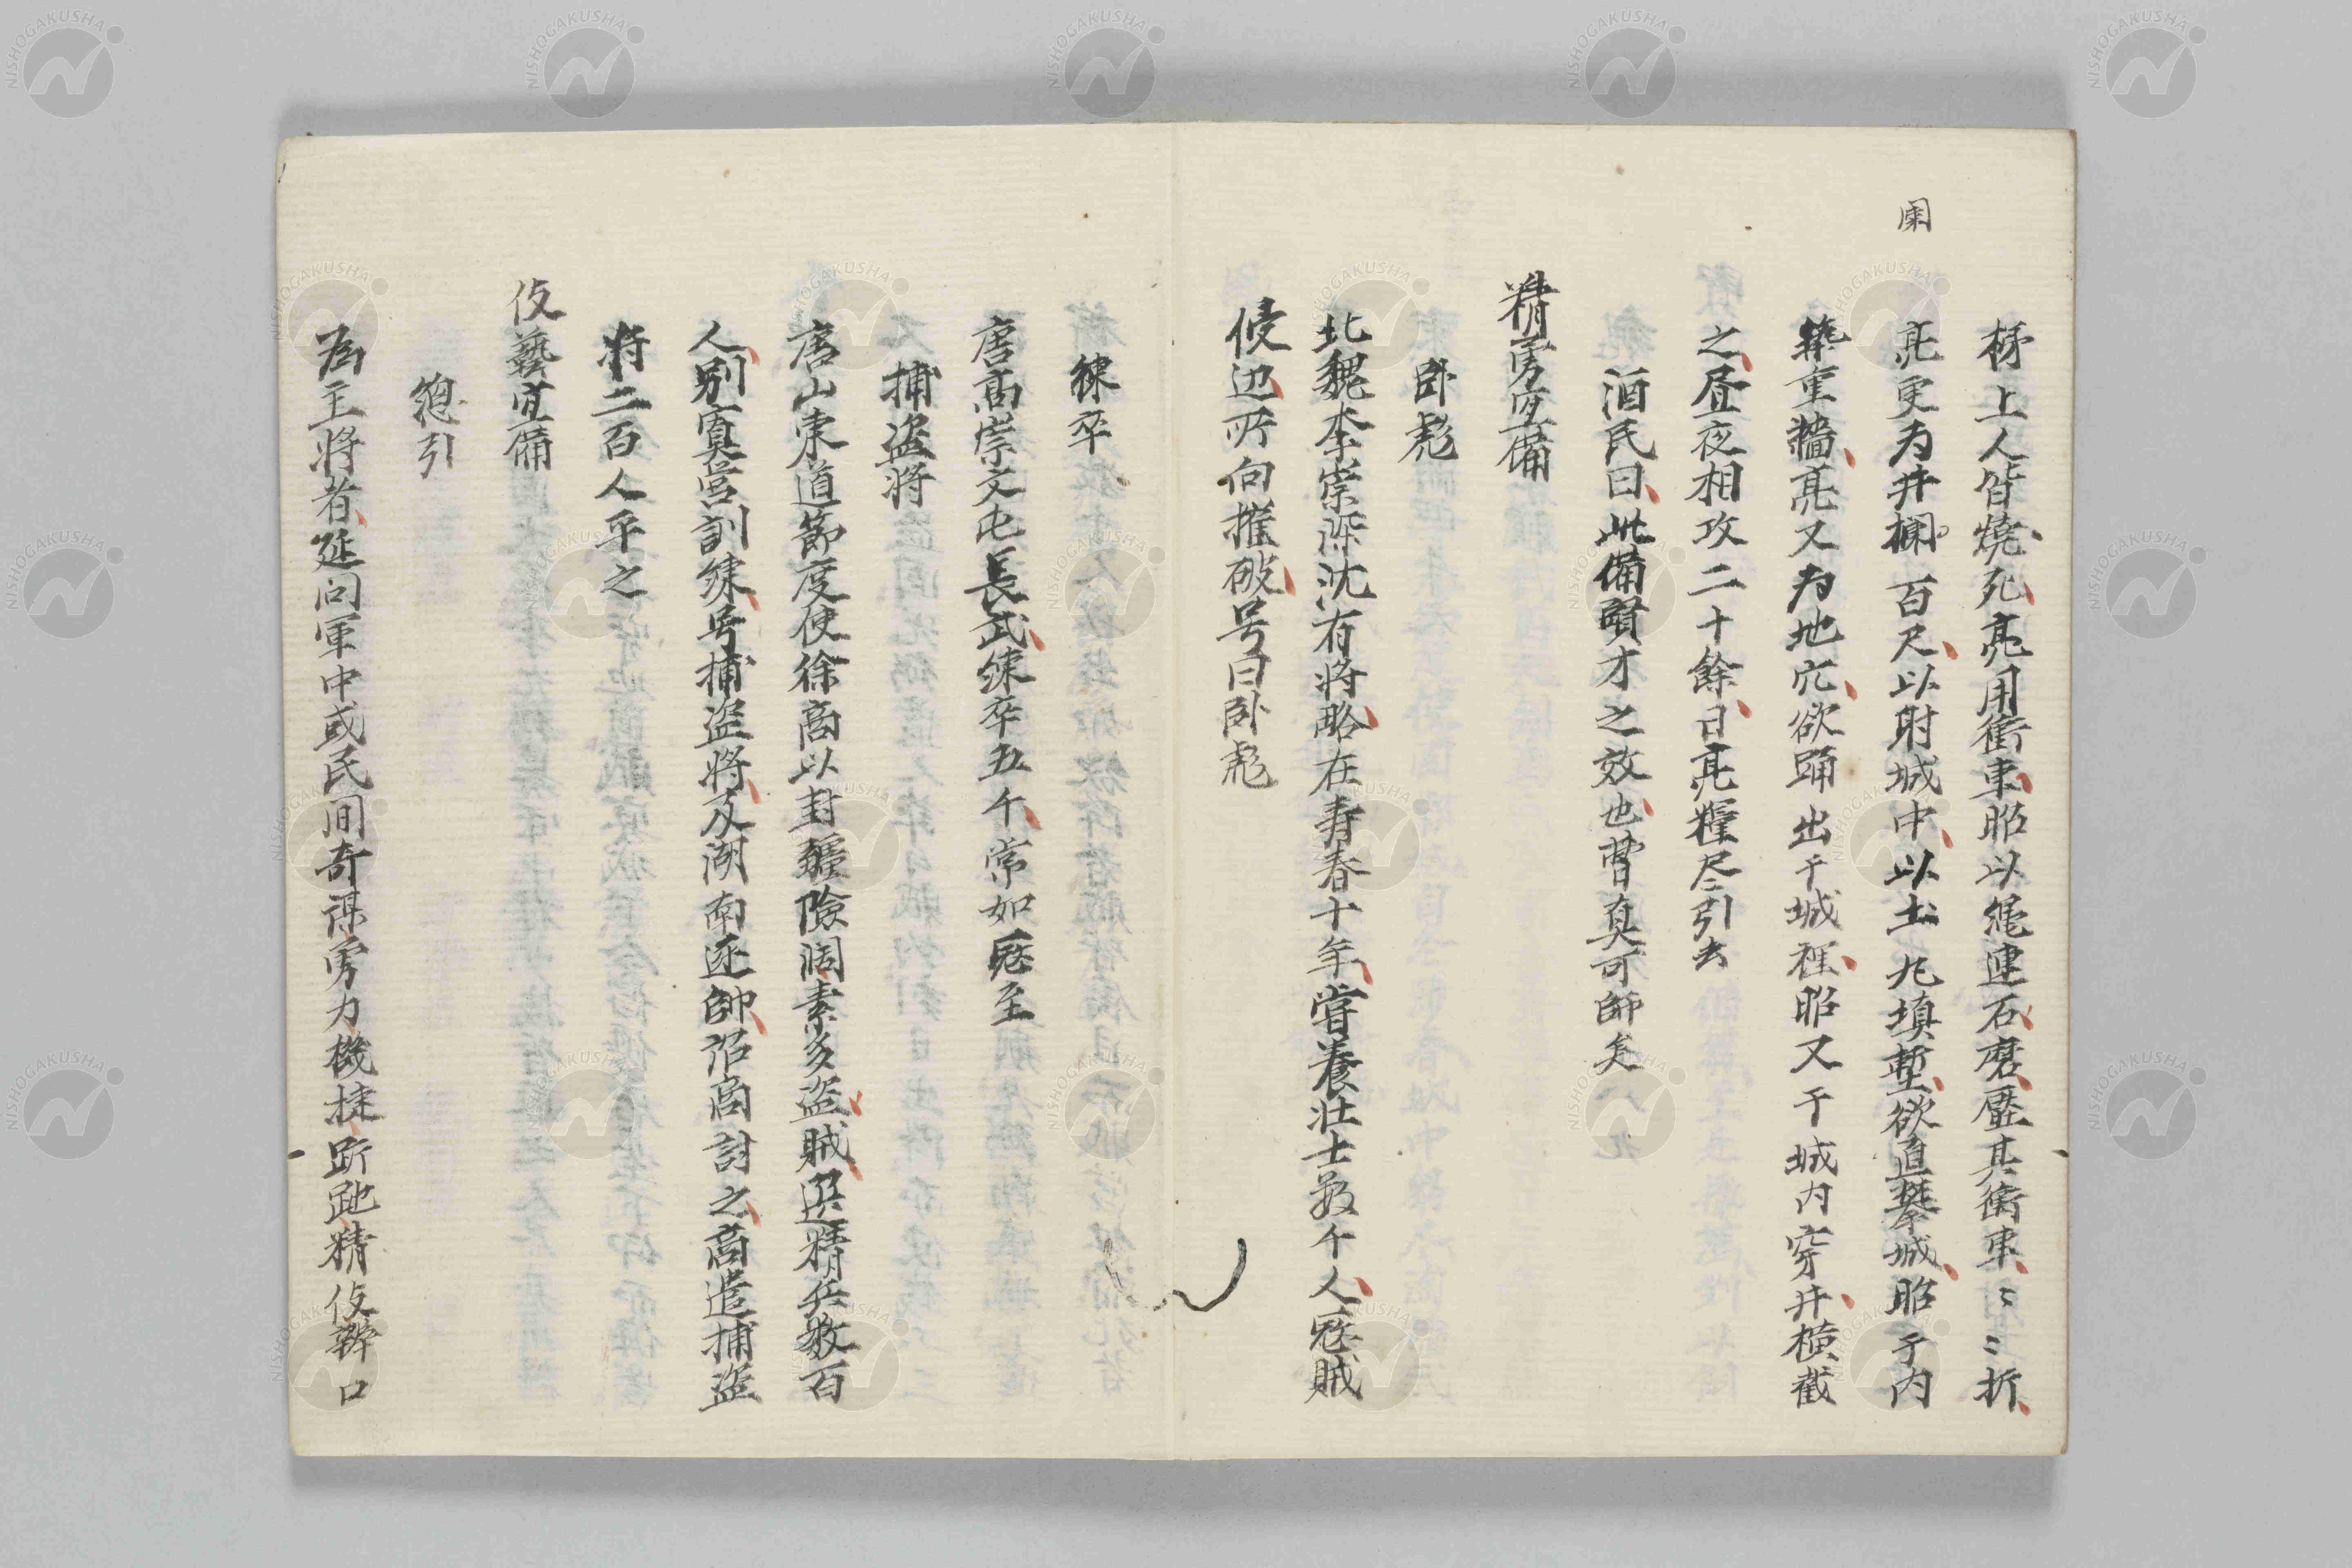 闌
梯上人皆燒死亮用衝車昭以繩連石磨壓其衝車〻〻折
亮更为井欄百尺以射城中以土丸填塹欲直攀城昭于内
築重牆亮又为地穴欲踊出于城裡昭又于城内穿井横截
之昼夜相攻二十餘日亮糧尽引去
酒民曰此備賢才之效也曹真可師矣
精勇宜備
卧彪
北魏李崇深沈有将略在寿春十年嘗養壮士数千人寇賊
侵边所向摧破号曰卧彪
練卒
唐高崇文屯長武練卒五千常如寇至
捕盗将
唐山東道節度使徐商以封疆險闊素多盗賊選精兵数百
人別寘营訓練号捕盗将及湖南逐帥詔商討之商遣捕盗
将二百人平之
伎藝宜備
總引
为主将者延问軍中或民间奇謀勇力機捷跅跎精伎辯口